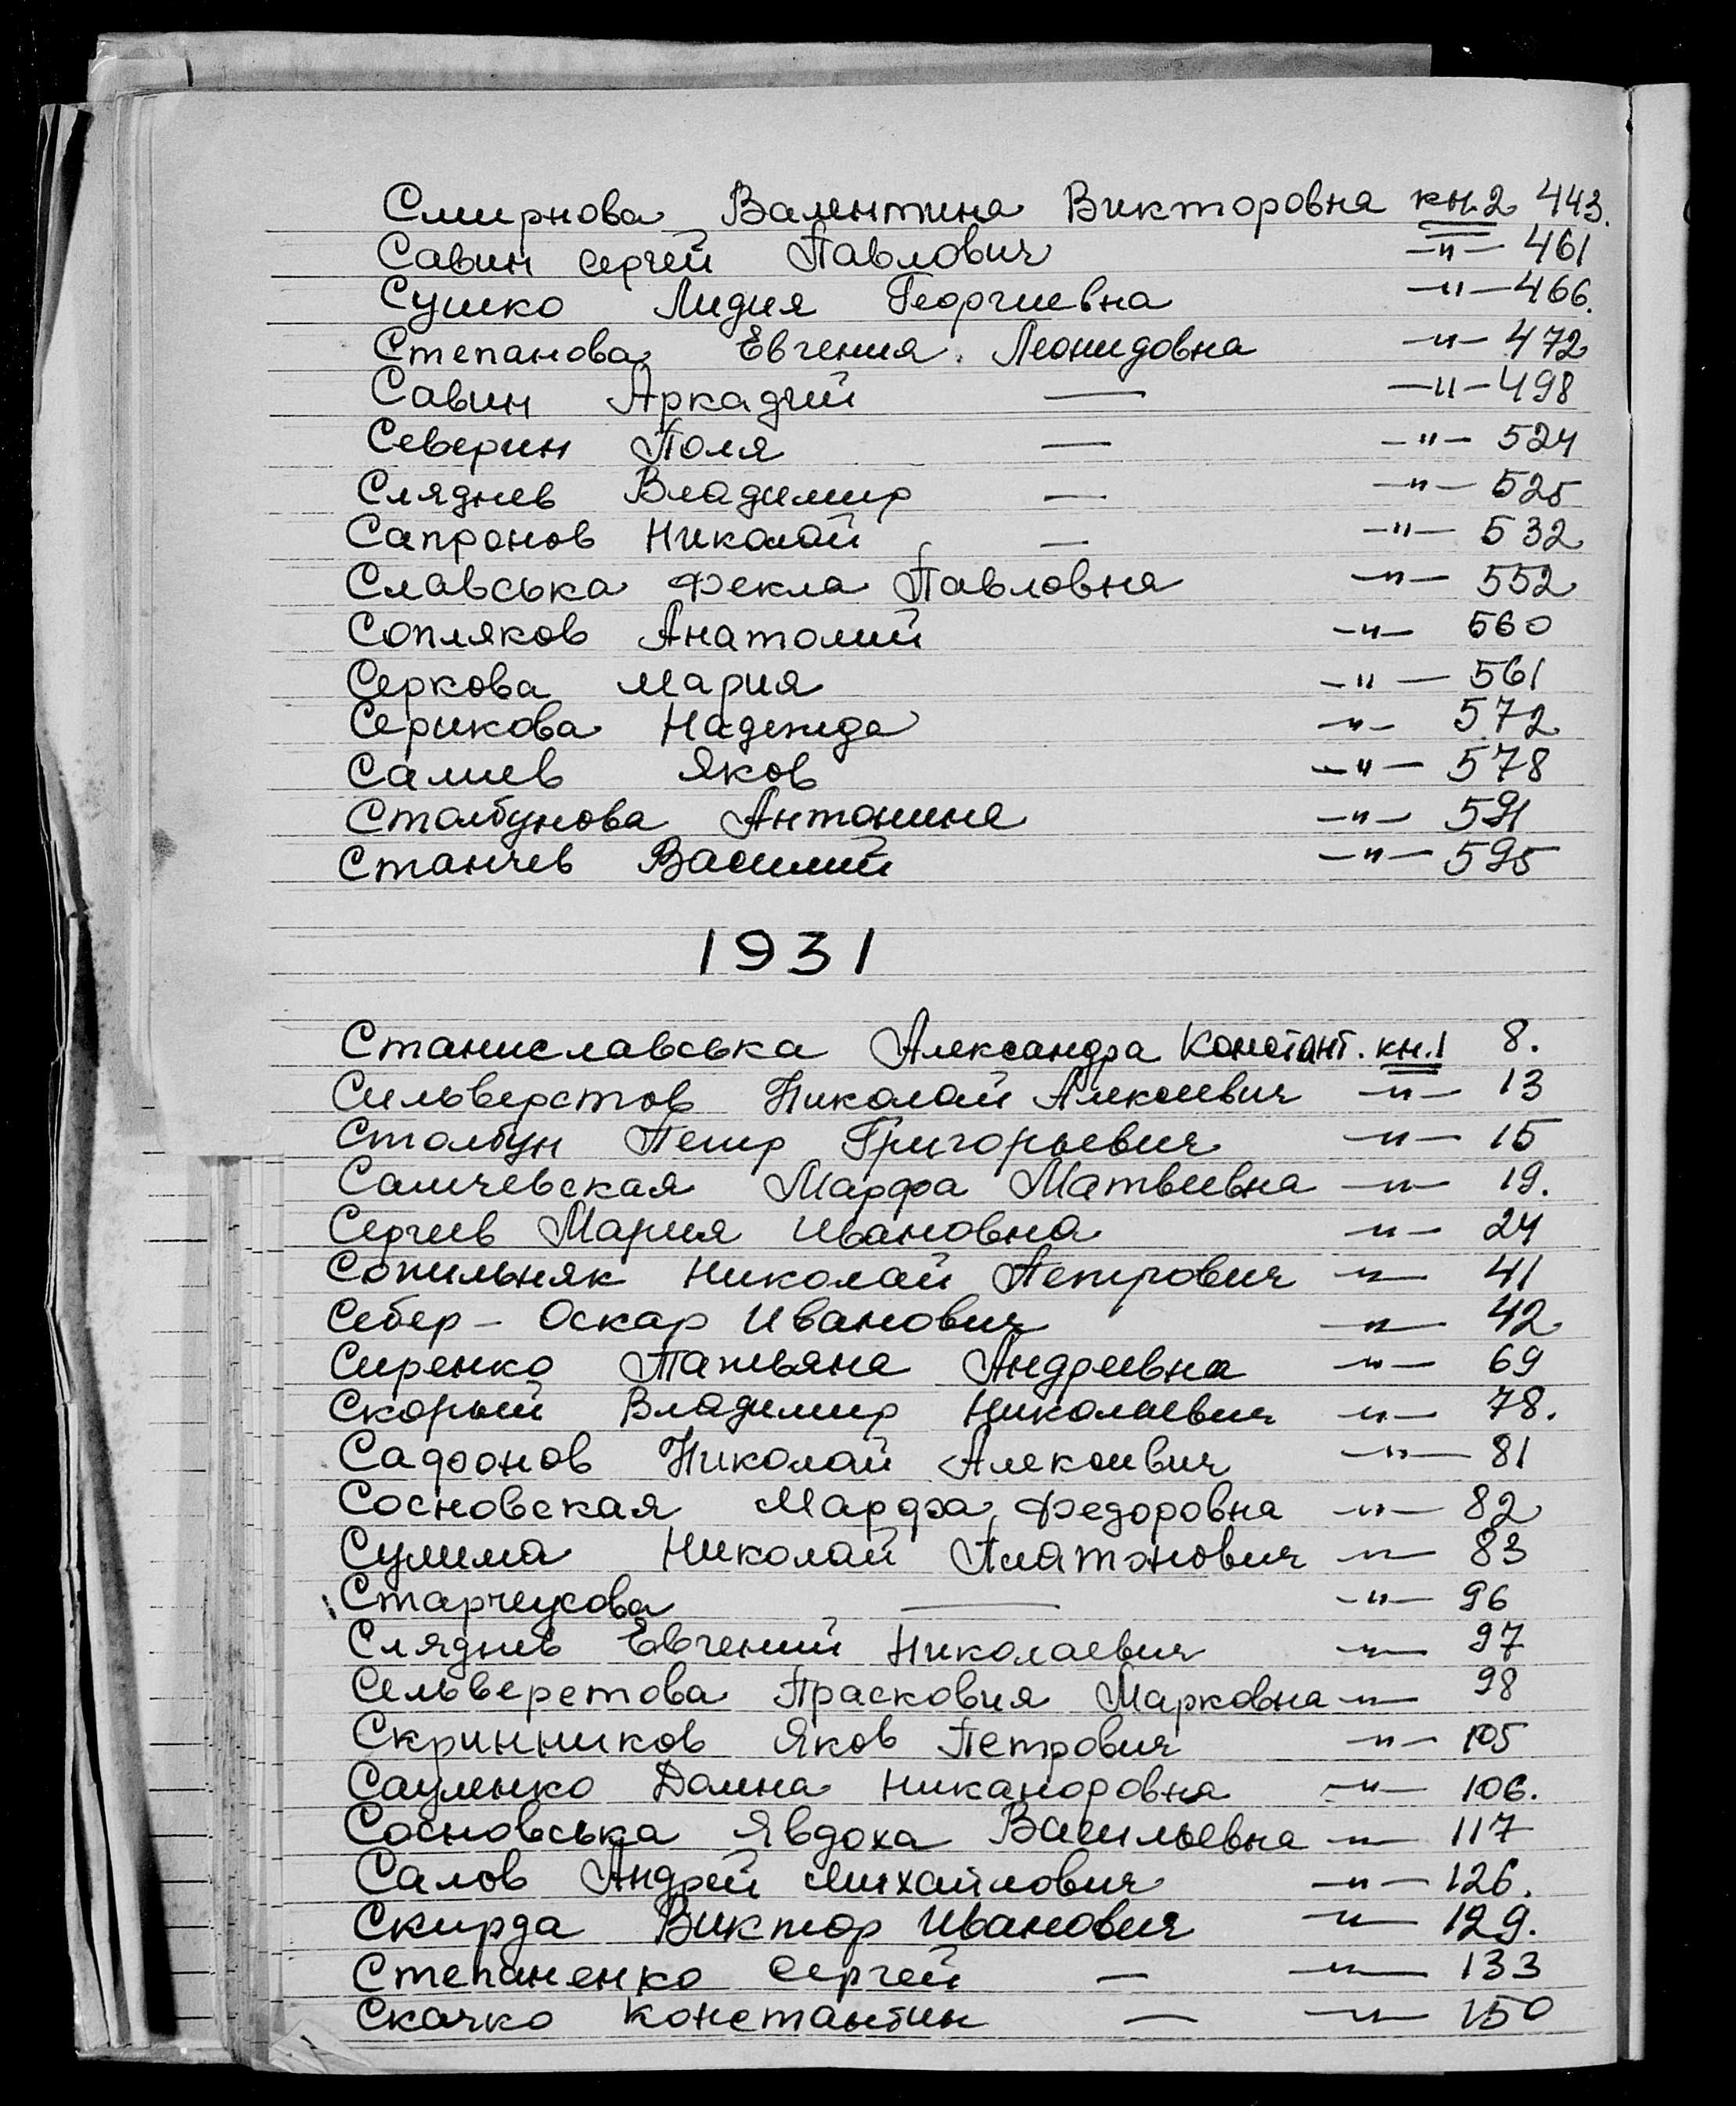 Смирнова Валентина Викторовна кн.2 443.
Савин Сергей Павлович —"— 461
Сушко Лидия Георгиевна —"— 466.
Степанова Евгения Леонидовна —"— 472
Савин Аркадий — —"— 498
Северин Поля — —"— 524
Сляднев Владимир — —"— 525
Сапронов Николай — —"— 532
Славська Фекла Павловна —"— 552
Сопляков Анатолий —"— 560
Серкова Мария —"— 561
Серикова Надежда —"— 572
Салиев Яков —"— 578
Столбунова Антонина —"— 591
Станчев Василий —"— 595
1931
Станиславська Александра Констант. кн.1 8.
Сильверстов Николай Алексеевич —"— 13
Столбун Петр Григорьевич —"— 15
Саличевская Марфа Матвеевна —"— 19.
Сергеев Мария Ивановна —"— 24
Сопильняк Николай Петрович —"— 41
Себер - Оскар Иванович —"— 42
Сиренко Татьяна Андреевна —"— 69
Скорый Владимир Николаевич —"— 78.
Сафонов Николай Алексеевич —"— 81
Сосновская Марфа Федоровна —"— 82
Сулима Николай Платонович —"— 83
Старчеусова — —"— 96
Сляднев Евгений Николаевич —"— 97
Сельверстова Прасковия Марковна —"— 98
Скринников Яков Петрович —"— 105
Сауленко Домна Никаноровна —"— 106.
Сосновська Явдоха Васильевна —"— 117
Салов Андрей Михайлович —"— 126.
Скирда Виктор Иванович —"— 129.
Степаненко Сергей — —"— 133
Скачко Константин — —"— 150